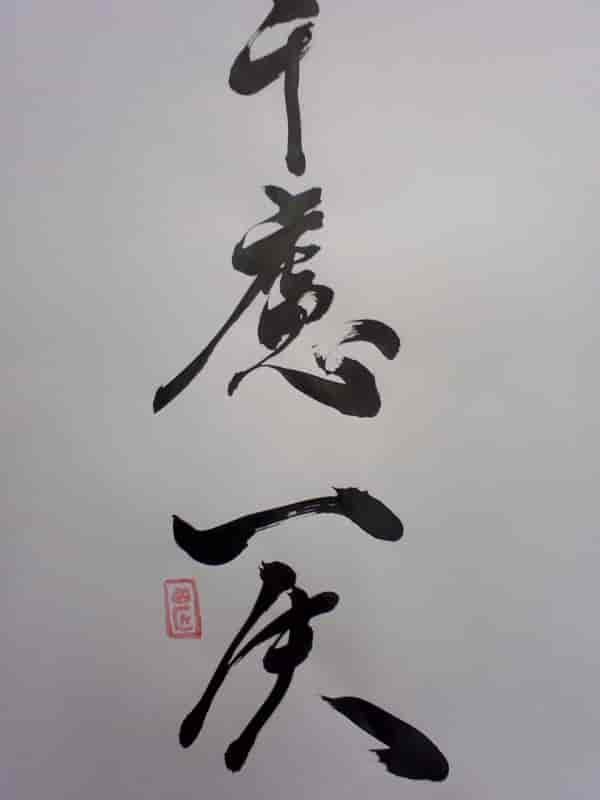 千慮一失